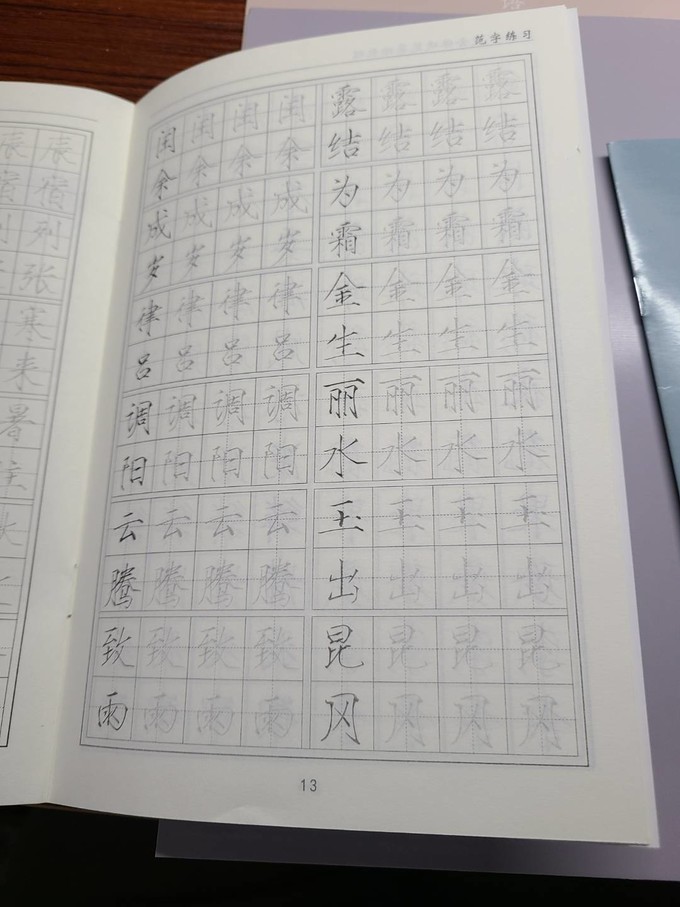 辰 辰
宿 宿
列 列
张
寒
来
暑
范字练习
闰 闰 闰 闰 露 露 露 露
余 余 余 余 结 结 结 结
成 成 成 成 为 为 为 为
岁 岁 岁 岁 霜 霜 霜 霜
律 律 律 律 金 金 金 金
吕 吕 吕 吕 生 生 生 生
调 调 调 调 丽 丽 丽 丽
阳 阳 阳 阳 水 水 水 水
云 云 云 云 玉 玉 玉 玉
腾 腾 腾 腾 出 出 出 出
致 致 致 致 昆 昆 昆 昆
雨 雨 雨 雨 冈 冈 冈 冈
13